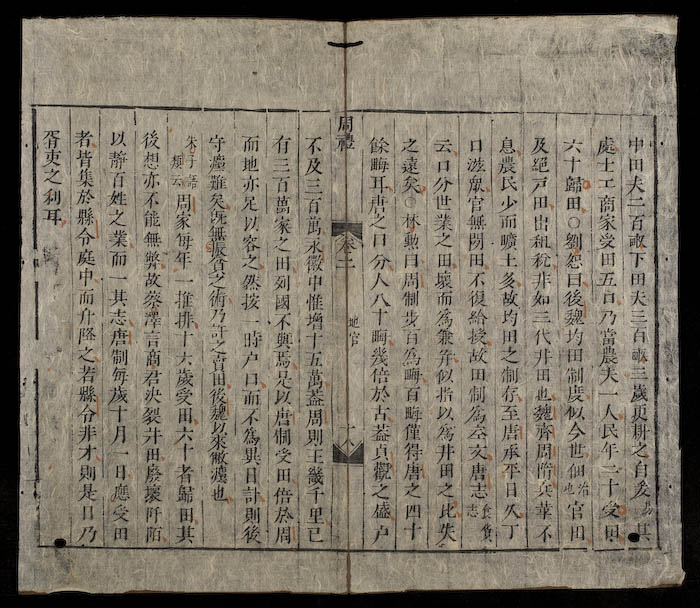 中田夫二百畝下田夫三百畝三歲更耕之自爰易其
處士工商家受田五口乃當農夫一人民年二十受田
六十歸田○劉恕曰後魏均田制度似今世佃治也官田
及絕戸田出租稅非如三代井田也魏齊周隋兵革不
息農民少而曠土多故均田之制存至唐承平日久丁
口滋衆官無閒田不復給授故田制為空文唐志食貨志
云口分世業之田壞而為兼并似指以為井田之比失
之遠矣○林勳曰周制步百為畮百畮僅得唐之四十
餘畮耳唐之口分人八十畮幾倍於古葢貞觀之盛户
周禮
卷二
地官
十八
不及三百萬永徽中惟增十五萬葢周則王畿千里已
有三百萬家之田列國不與焉是以唐制受田倍於周
而地亦足以容之然按一時户口而不為異日計則後
守灋難矣旣無振貧之術乃許之賣田後魏以來敝灋也
朱子語類云周家每年一推排十六歲受田六十者歸田其
後想亦不能無弊故蔡澤言商君決裂井田廢壞阡陌
以靜百姓之業而一其志唐制每歲十月一日應受田
者皆集於縣令庭中而升降之若縣令非才則是日乃
胥吏之利耳